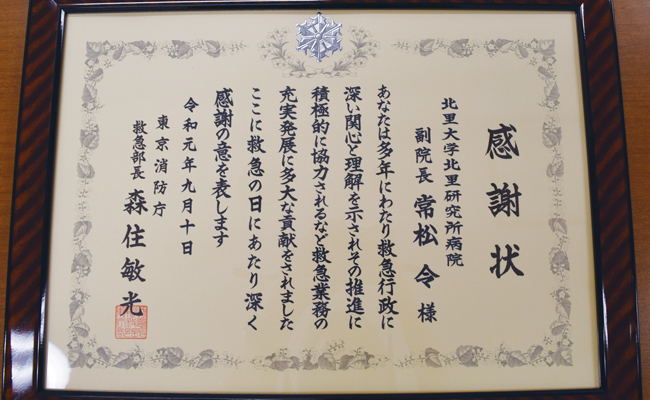 感謝状
北里大学北里研究所病院
副院長 常松 令 様
あなたは多年にわたり救急行政に
深い関心と理解を示されその推進に
積極的に協力されるなど救急業務の
充実発展に多大な貢献をされました
ここに救急の日にあたり深く
感謝の意を表します
令和元年九月十日
東京消防庁
救急部長 森住敏光